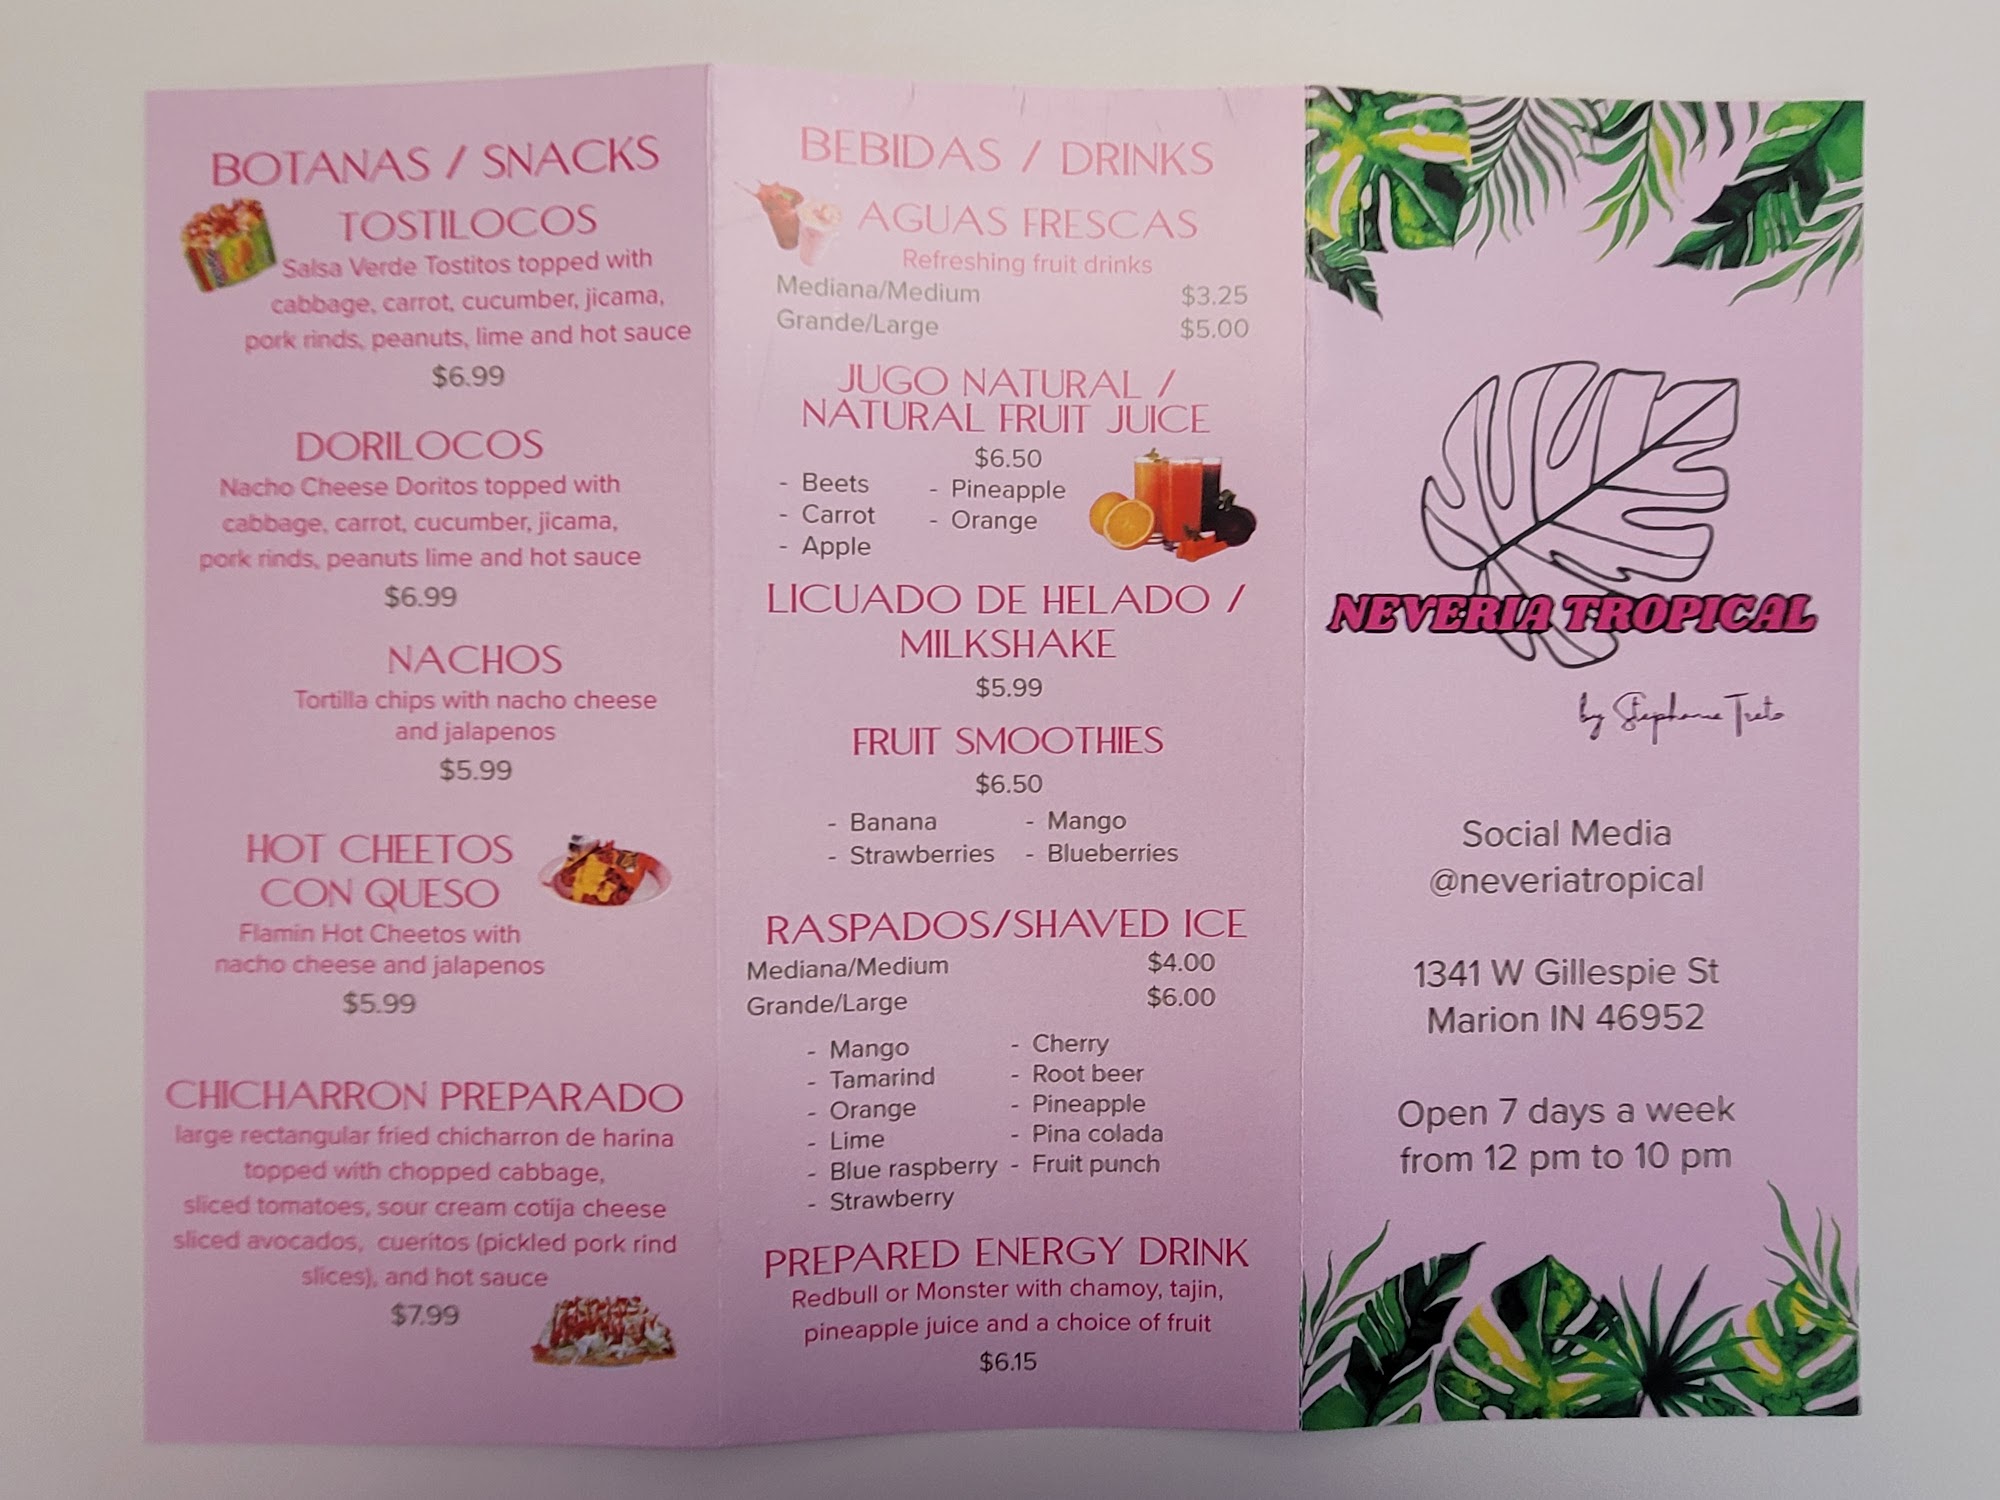 BOTANAS / SNACKS
TOSTILOCOS
Salsa Verde Tostitos topped with
cabbage, carrot, cucumber, jicama,
pork rinds, peanuts, lime and hot sauce
$6.99
DORILOCOS
Nacho Cheese Doritos topped with
cabbage, carrot, cucumber, jicama,
pork rinds, peanuts lime and hot sauce
$6.99
NACHOS
Tortilla chips with nacho cheese
and jalapenos
$5.99
HOT CHEETOS
CON QUESO
Flamin Hot Cheetos with
nacho cheese and jalapenos
$5.99
CHICHARRON PREPARADO
large rectangular fried chicharron de harina
topped with chopped cabbage,
sliced tomatoes, sour cream cotija cheese
sliced avocados, cueritos (pickled pork rind
slices), and hot sauce
$7.99
BEBIDAS / DRINKS
AGUAS FRESCAS
Refreshing fruit drinks
Mediana/Medium $3.25
Grande/Large $5.00
JUGO NATURAL /
NATURAL FRUIT JUICE
$6.50
- Beets - Pineapple
- Carrot - Orange
- Apple
LICUADO DE HELADO /
MILKSHAKE
$5.99
FRUIT SMOOTHIES
$6.50
- Banana - Mango
- Strawberries - Blueberries
RASPADOS/SHAVED ICE
Mediana/Medium $4.00
Grande/Large $6.00
- Mango - Cherry
- Tamarind - Root beer
- Orange - Pineapple
- Lime - Pina colada
- Blue raspberry - Fruit punch
- Strawberry
PREPARED ENERGY DRINK
Redbull or Monster with chamoy, tajin,
pineapple juice and a choice of fruit
$6.15
NEVERIA TROPICAL
by Stephanie Treto
Social Media
@neveriatropical
1341 W Gillespie St
Marion IN 46952
Open 7 days a week
from 12 pm to 10 pm